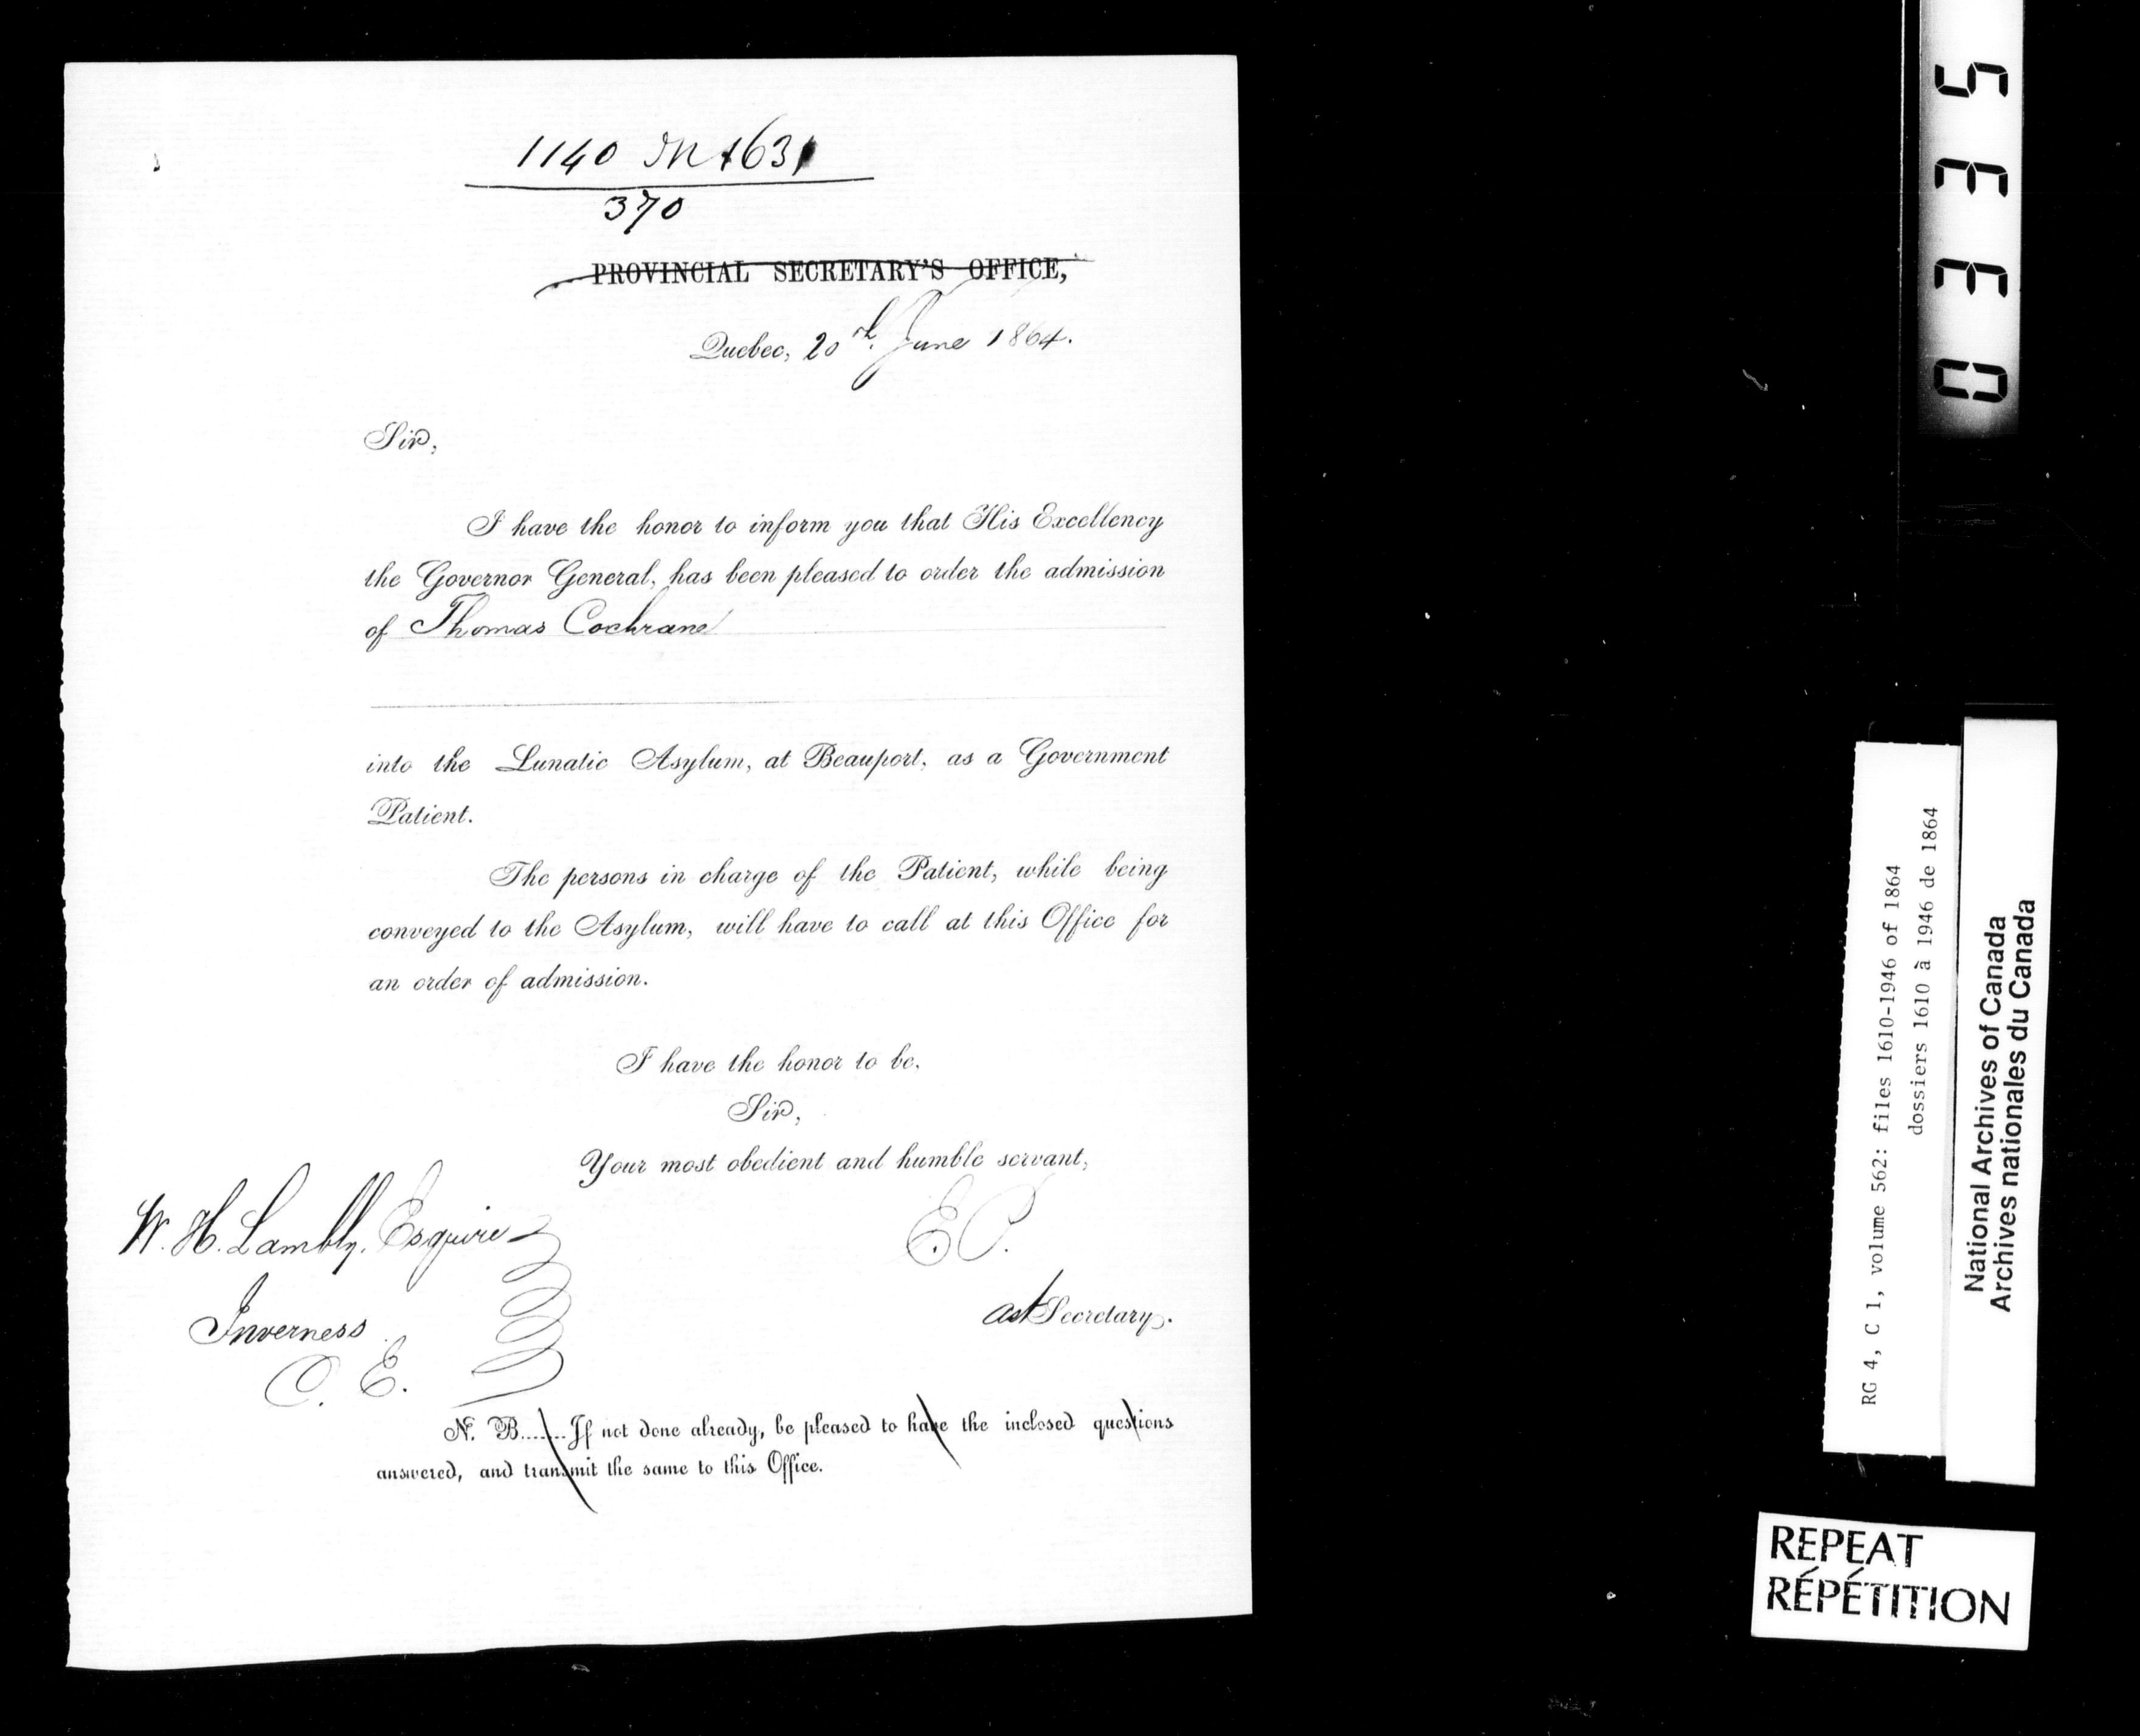 1140 M 1631
370
PROVINCIAL SECRETARY'S OFFICE,
Quebec, 20th. June 1864.
Sir,
I have the honor to inform you that His Excellency
the Governor General, has been pleased to order the admission
of Thomas Cochrane
into the Lunatic Asylum, at Beauport, as a Government
Patient.
The persons in charge of the Patient, while being
conveyed to the Asylum, will have to call at this Office for
an order of admission.
I have the honor to be,
Sir,
Your most obedient and humble servant,
E. P.
Ast Secretary.
W. H. Lambly, Esquire
Inverness
C. E.
N. B.......If not done already, be pleased to have the inclosed questions
answered, and transmit the same to this Office.
0335
RG 4, C 1, volume 562: files 1610-1946 of 1864
dossiers 1610 à 1946 de 1864
National Archives of Canada
Archives nationales du Canada
REPEAT
RÉPÉTITION